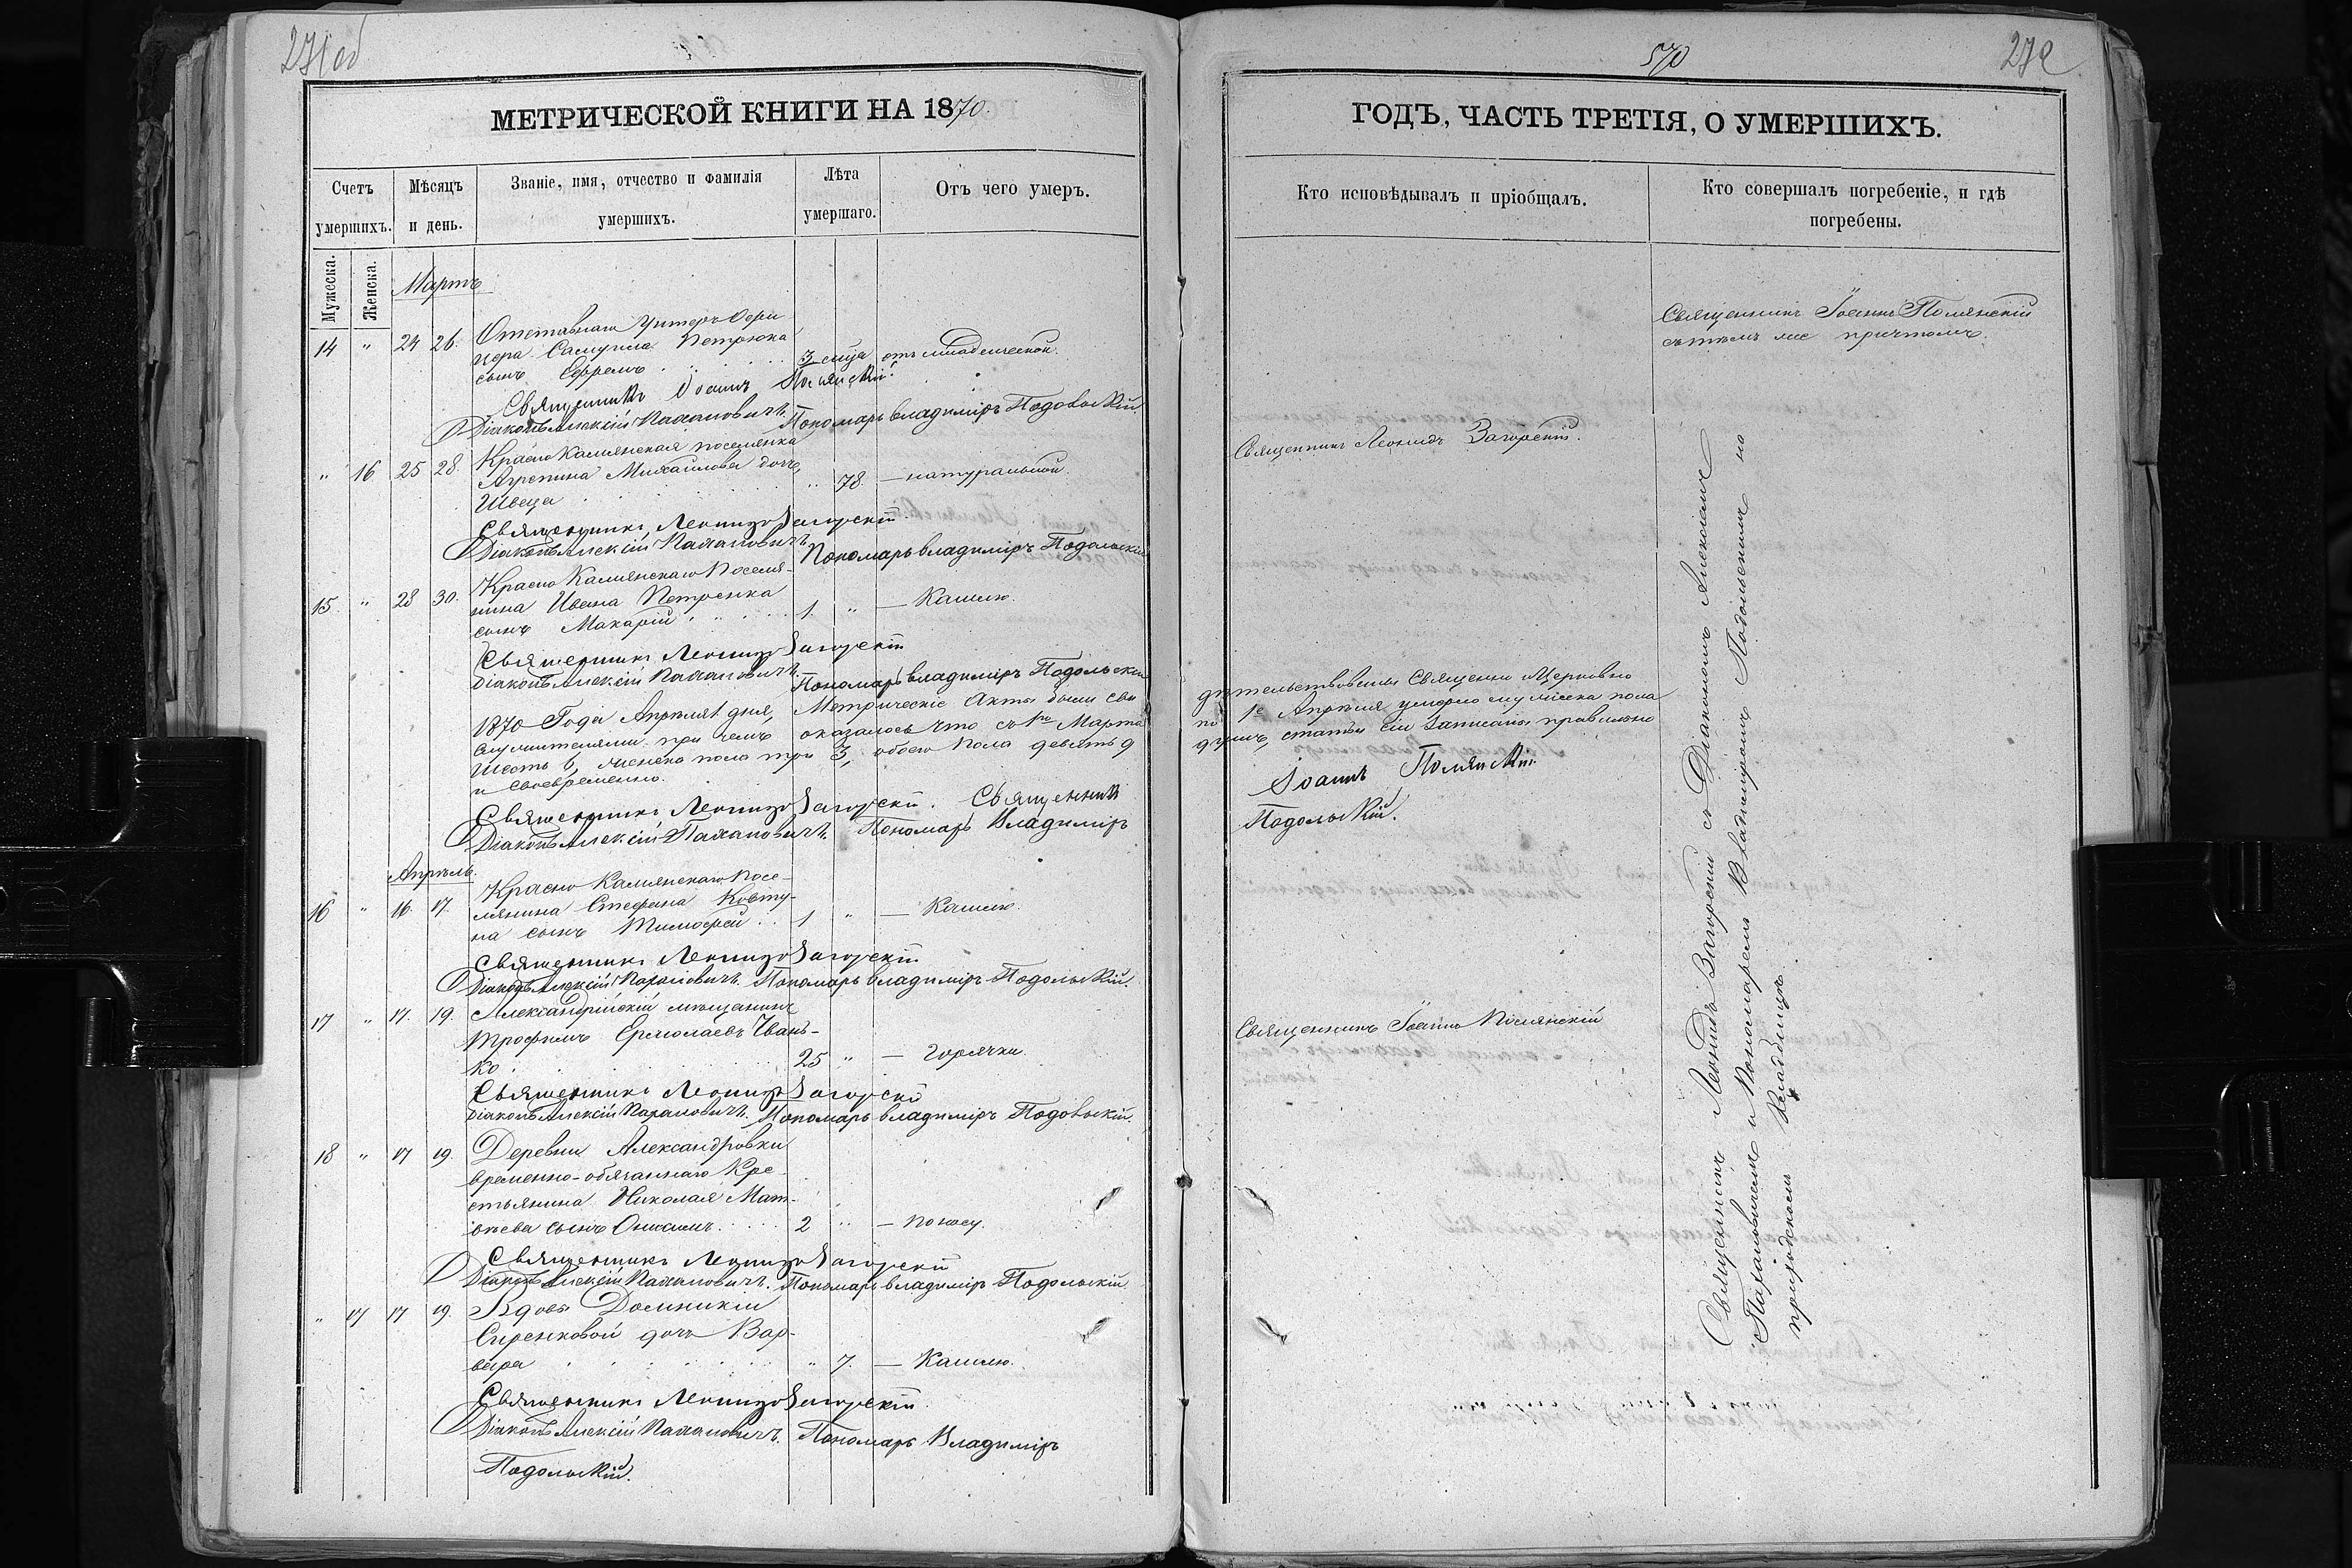 271об
МЕТРИЧЕСКОЙ КНИГИ НА 1870.
Счетъ умершихъ.
Мѣсяцъ и день.
Званіе, имя, отчество и фамилія умершихъ.
Лѣта умершаго.
Отъ чего умеръ.
Мужеска.
Женска.
Мартъ
14 " 24 26. Отставнаго Унтеръ Офи
цера Самуила Петрюка
сынъ Ефремъ . . . . . 3 мѣца отъ младенческой.
Священникъ Іоаннъ Полянскій.
Діаконъ Алексій Пахаловичъ. Пономарь Владиміръ Подольскій.
" 16 25 28. Красно Камянская поселянка
Агрепина Михаилова дочь
Швеца . . . . . " 78. — натуральной.
Священникъ Леонидъ Загорскій.
Діаконъ Алексій Пахаловичъ. Пономарь Владиміръ Подольскій
15. " 28 30. Красно Камянскаго Поселя-
нина Ивана Петренка
сынъ Макарій . . . . 1. " — Кашлю.
Священникъ Леонидъ Загорскій
Діаконъ Алексій Пахаловичъ. Пономарь Владиміръ Подольскій
1870 Года Апрѣля 1 дня, Метрическіе Акты были сви
служителями при чемъ оказалось что съ 1го Марта
шесть 6, женска пола три 3, обоего пола девять 9
и своевременно.
Священникъ Леонидъ Загорскій. Священникъ
Діаконъ Алексій Пахаловичъ. Пономарь Владиміръ
Апрѣль.
16 " 16. 17. Красно Камянскаго Посе-
лянина Стефана Ковту-
на сынъ Тимофей . . 1 " — Кашлю.
Священникъ Леонидъ Загорскій
Діаконъ Алексій Пахаловичъ. Пономарь Владиміръ Подольскій.
17 " 17. 19. Александрійскій мѣщанинъ
Трофимъ Ермолаевъ Чвань-
ко . . . . . 25 " — Горячки.
Священникъ Леонидъ Загорскій
Діаконъ Алексій Пахаловичъ. Пономарь Владиміръ Подольскій.
18 " 17 19. Деревни Александровки
временно-обязаннаго Кре
стьянина Николая Мат-
вѣева сынъ Онисимъ . . . . 2 " — поносу.
Священникъ Леонидъ Загорскій
Діаконъ Алексій Пахаловичъ. Пономарь Владиміръ Подольскій
" 17 17 19. Вдовы Домникіи
Сиренковой дочь Вар-
вара . . . . . " 7. — Кашлю.
Священникъ Леонидъ Загорскій.
Діаконъ Алексій Пахаловичъ. Пономарь Владиміръ
Подольскій.
570
272
ГОДЪ, ЧАСТЬ ТРЕТІЯ, О УМЕРШИХЪ.
Кто исповѣдывалъ и пріобщалъ.
Кто совершалъ погребеніе, и гдѣ погребены.
Священникъ Іоаннъ Полянскій
съ тѣмъ же причтомъ.
Священникъ Леонидъ Загорскій.
дѣтельствованы Священно Церковно
по 1е Апрѣля умерло мужеска пола
душъ, статьи сіи записаны правильно
Іоаннъ Полянскій.
Подольскій.
Священникъ Іоаннъ Полянскій
Священникъ Леонидъ Загорскій съ Діакономъ Алексіемъ
Пахаловичемъ и Пономаремъ Владиміромъ Подольскимъ на
приходскомъ кладбищѣ.